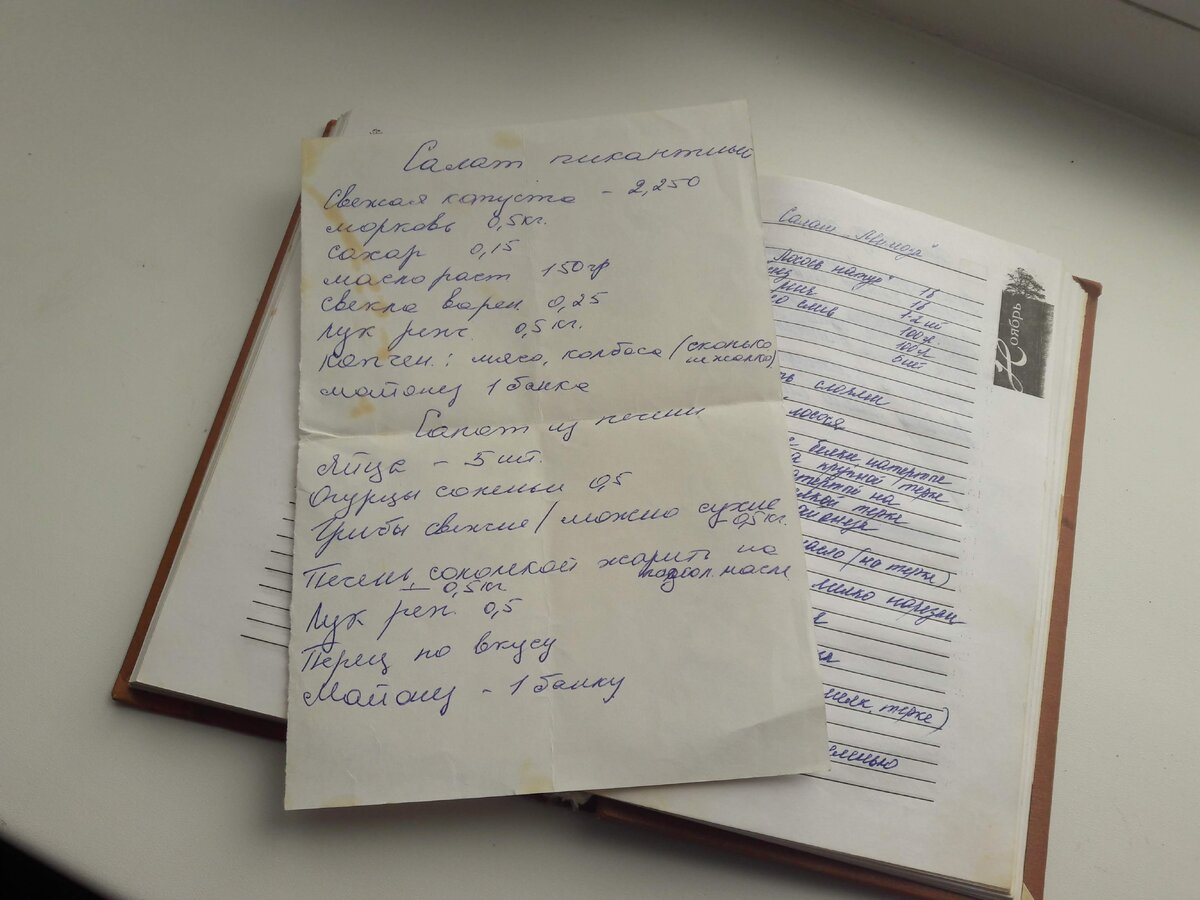 Салат пикантный
Свежая капуста - 2,250
морковь 0,5 кг.
сахар 0,15
масло раст 150 гр
свекла варен. 0,25
Лук реп. 0,5 кг.
Копчен.: мясо, колбаса (сколько не жалко)
майонез 1 банка
Салат из печени
Яйца - 5 шт.
Огурцы соленые 0,5
Грибы свежие / можно сухие - 0,5 кг.
Печень соломкой жарить на подсол. масле
- 0,5 кг
Лук реп. 0,5
Перец по вкусу
Майонез - 1 банку
Салат
"Лосось натур" 1б
1б
100 г.
100 г.
лосося
белки натертые
крупной терке
на
терке
(на терке)
мелко нарезан
терке)
Ноябрь